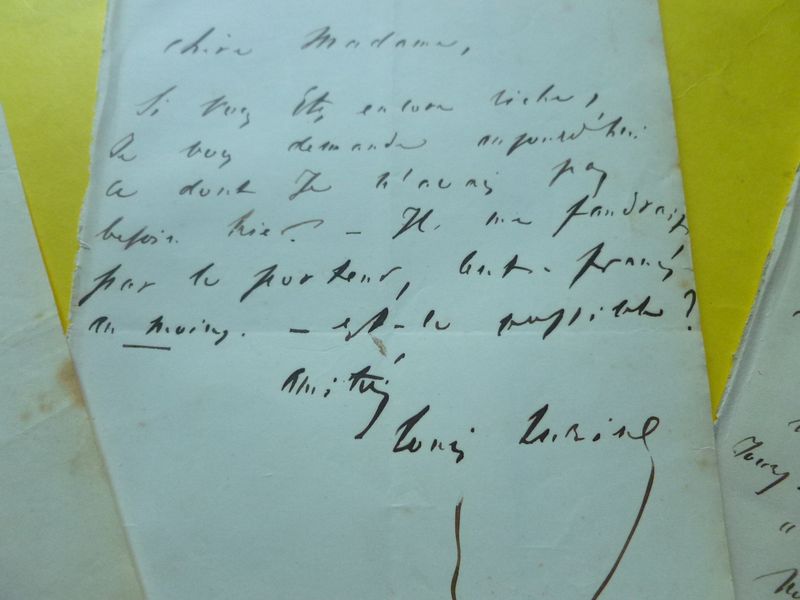 chère Madame,
Si vous êtes encore riche,
Je vous demande aujourd'hui
ce dont Je n'avais pas
besoin hier. — Il me faudrait,
par le porteur, cent francs
au moins. — est-ce possible ?
amitiés
Louis Lurine